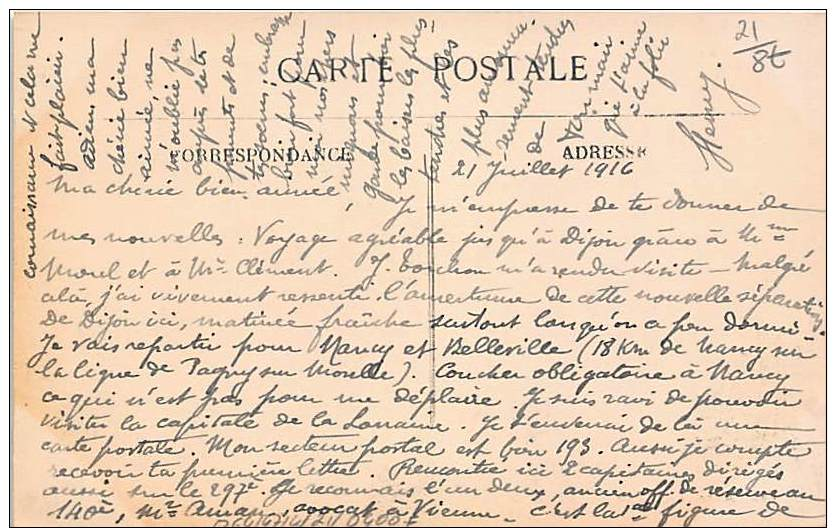 CARTE POSTALE
CORRESPONDANCE
ADRESSE
21 Juillet 1916
Ma chérie bien aimée,
Je m'empresse de te donner de
mes nouvelles : Voyage agréable jusqu'à Dijon grâce à Mme
Morel et à Mr Clément. J. Torchon m'a rendu visite - Malgré
cela, j'ai vivement ressenti l'amertume de cette nouvelle séparation.
De Dijon ici, matinée fraîche surtout lorsqu'on a peu dormi
Je vais repartir pour Nancy et Belleville (18 Km de Nancy sur
la ligne de Pagny sur Moselle). Coucher obligatoire à Nancy
ce qui n'est pas pour me déplaire. Je suis ravi de pouvoir
visiter la capitale de la Lorraine. Je t'enverrai de là une
carte postale. Mon secteur postal est bien 193. Aussi je compte
recevoir ta première lettre. Rencontré ici 2 capitaines dirigés
aussi sur le 297e. Je reconnais l'un d'eux, ancien off. de réserve au
140e, Mr Aman, avocat à Vienne - c'est la figure de
connaissance et cela me
fait plaisir.
Adieu, ma
chérie bien
aimée, ne
m'oublie pas
auprès de tes
parents et de
tes soeurs, embrasse
bien fort pour
moi nos chers
mignons et
garde pour toi
les baisers les plus
tendres et les
plus
de
ton mari
qui t'aime
à la folie
21
86